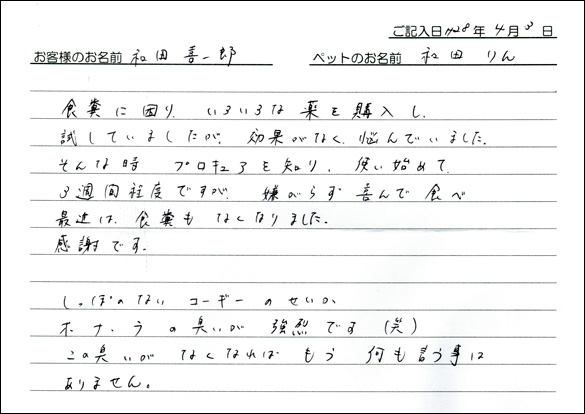 ご記入日 H28年 4月 3日
お客様のお名前 和田 喜一郎 ペットのお名前 和田 りん
食糞に困り、いろいろな薬を購入し、
試していましたが、効果がなく、悩んでいました。
そんな時 プロキュアを知り、使い始めて、
3週間程度ですが、嫌がらず喜んで食べ
最近は、食糞もなくなりました。
感謝です。
しっぽのない コーギーのせいか、
オナラの臭いが 強烈です(笑)
この臭いが なくなれば もう 何も言う事は
ありません。